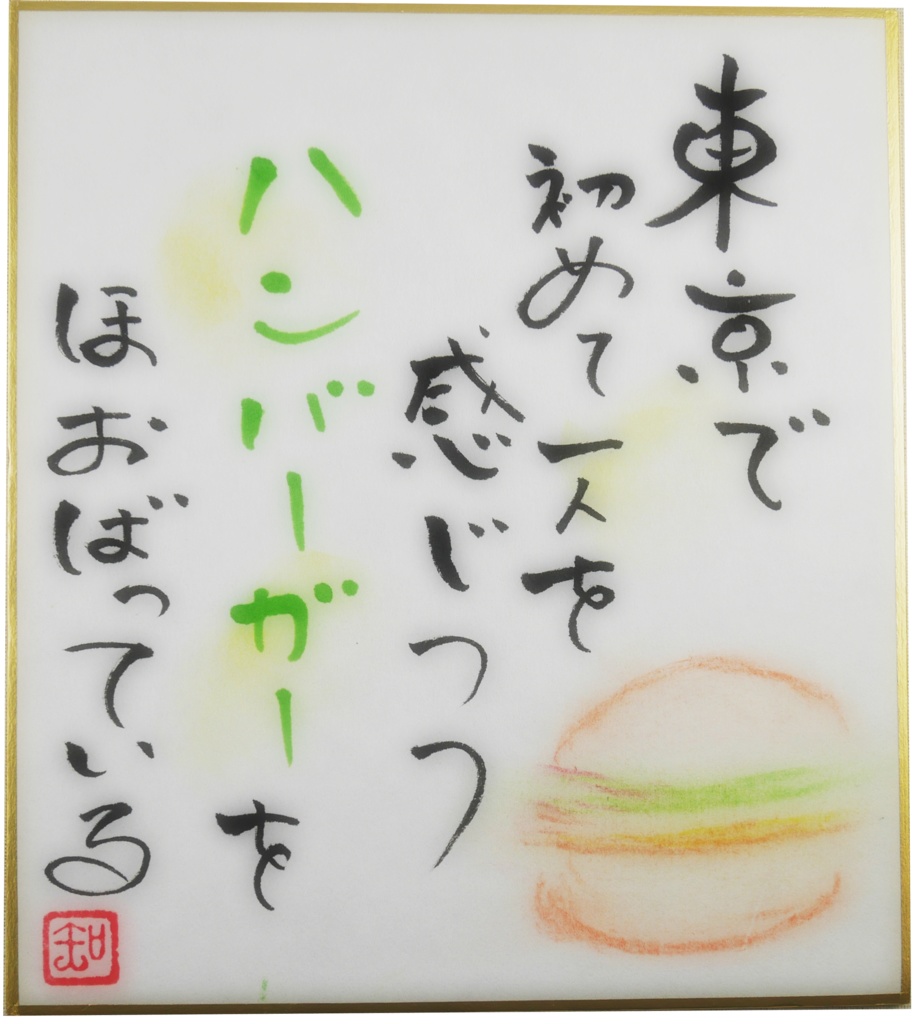 東京で
初めて一人を
感じつつ
ハンバーガーを
ほおばっている
知